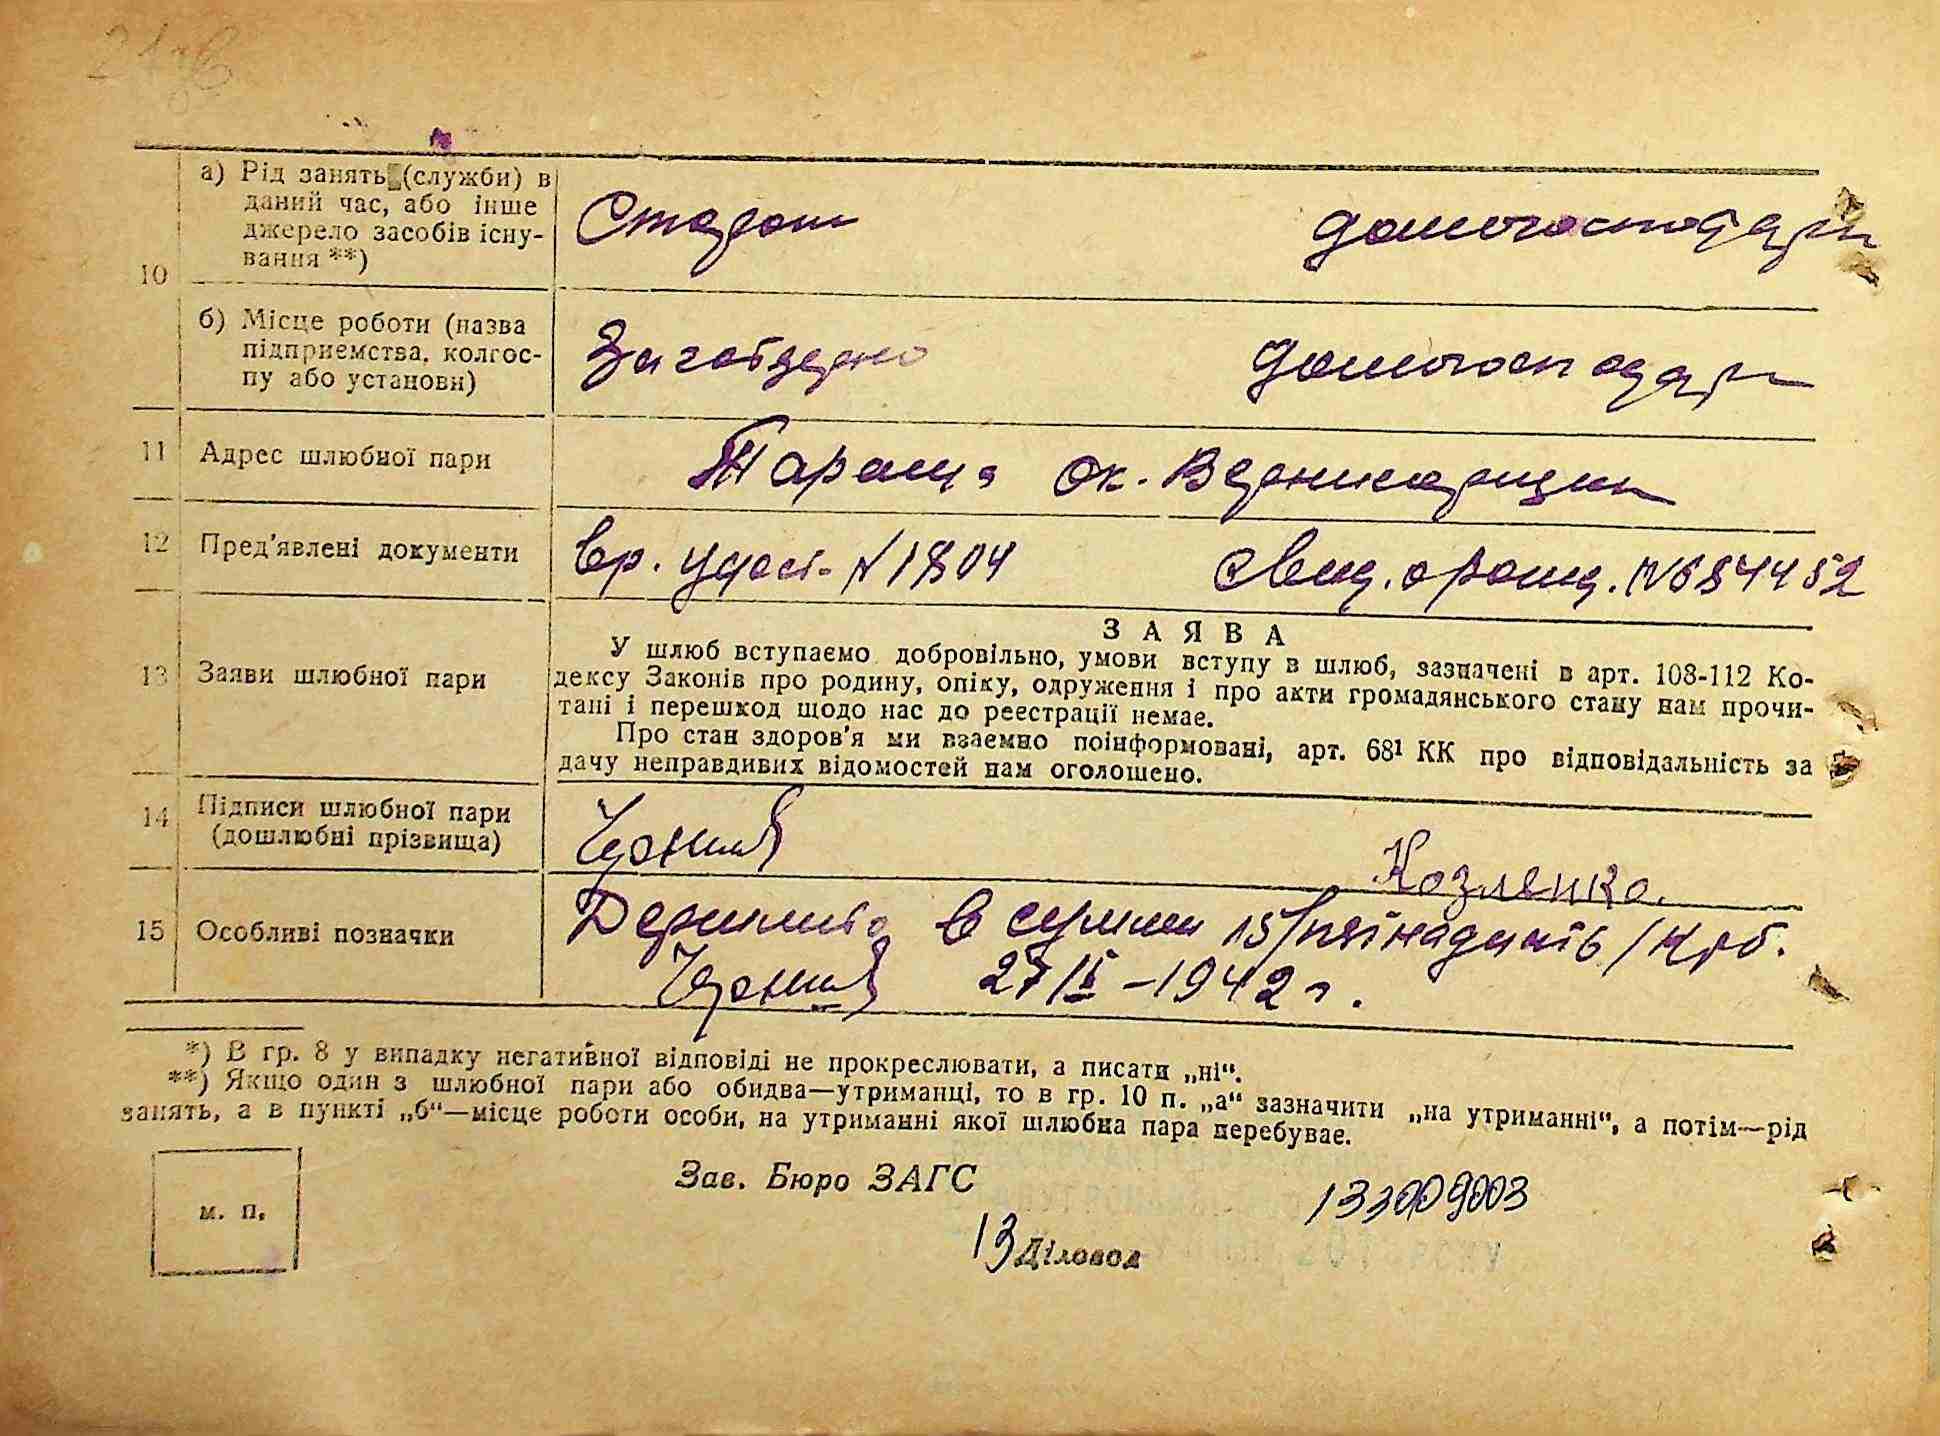 10
а) Рід занять (служби) в
даний час, або інше
джерело засобів існу-
вання **)
домогосподарк
б) Місце роботи (назва
підприємства, колгос-
пу або установи)
Заготзерно
домогосподарк
11 Адрес шлюбної пари
Тараща ок.
12 Пред'явлені документи
вр. удост. N 1804
Свид. о рожд. N 684452
13 Заяви шлюбної пари
ЗАЯВА
У шлюб вступаємо добровільно, умови вступу в шлюб, зазначені в арт. 108-112 Ко-
дексу Законів про родину, опіку, одруження і про акти громадянського стану нам прочи-
тані і перешкод щодо нас до реєстрації немає.
Про стан здоров'я ми взаємно поінформовані, арт. 68¹ КК про відповідальність за
дачу неправдивих відомостей нам оголошено.
14 Підписи шлюбної пари
(дошлюбні прізвища)
Козленко.
15 Особливі позначки
в сумми 15/пятнадцать/крб.
1942 г.
*) В гр. 8 у випадку негативної відповіді не прокреслювати, а писати „ні“.
**) Якщо один з шлюбної пари або обидва—утриманці, то в гр. 10 п. „а“ зазначити „на утриманні“, а потім—рід
занять, а в пункті „б“—місце роботи особи, на утриманні якої шлюбна пара перебуває.
м. п.
Зав. Бюро ЗАГС
13 Діловод